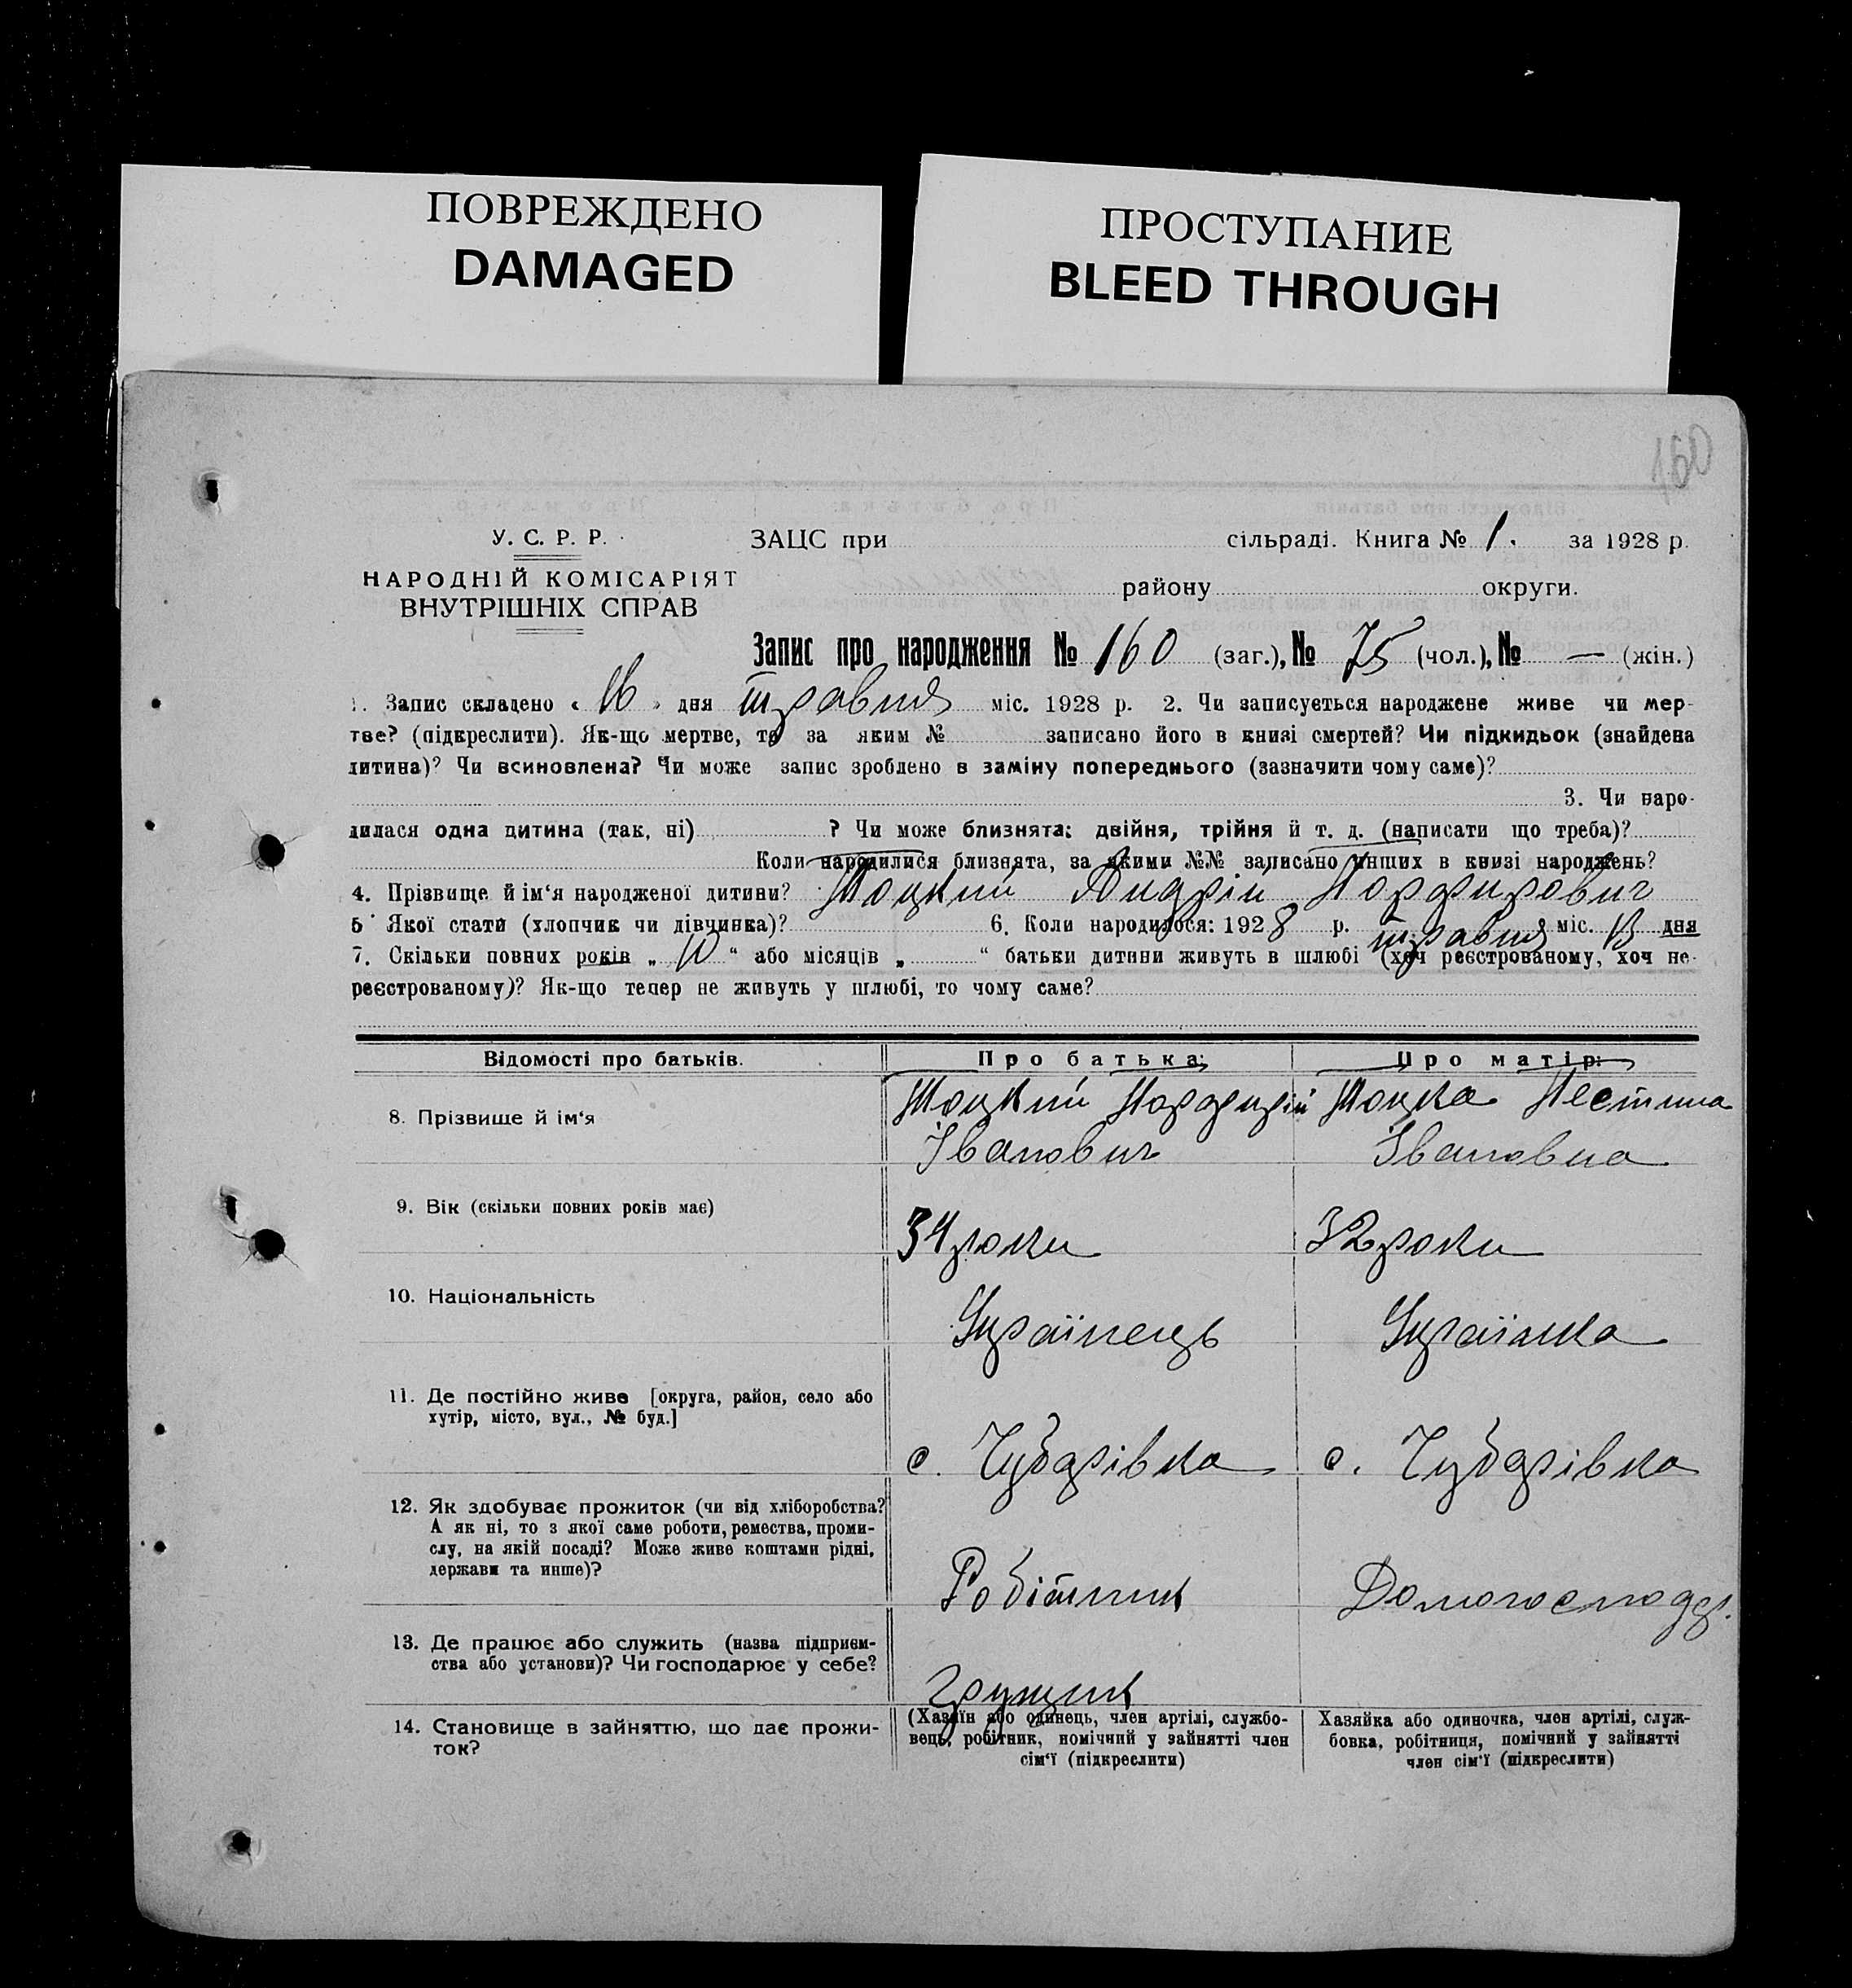 ПОВРЕЖДЕНО
DAMAGED
ПРОСТУПАНИЕ
BLEED THROUGH
160
У. С. Р. Р.
НАРОДНІЙ КОМІСАРІЯТ
ВНУТРІШНІХ СПРАВ
ЗАЦС при сільраді. Книга № 1. за 1928 р.
району округи.
Запис про народження № 160 (заг.), № 75 (чол.), № — (жін.)
1. Запис складено « 16 » дня травня міс. 1928 р. 2. Чи записується народжене живе чи мер-
тве? (підкреслити). Як-що мертве, то за яким № записано його в книзі смертей? Чи підкидьок (знайдена
дитина)? Чи всиновлена? Чи може запис зроблено в заміну попереднього (зазначити чому саме)?
3. Чи наро-
дилася одна дитина (так, ні) ? Чи може близнята: двійня, трійня й т. д. (написати що треба)?
Коли народилися близнята, за якими №№ записано инших в книзі народжень?
4. Прізвище й ім‘я народженої дитини? Тоцкий Андрій Порфирович
5 Якої стати (хлопчик чи дівчинка)? 6. Коли народилося: 1928 р. травня міс. 13 дня
7. Скільки повних років „ 10 “ або місяців „ “ батьки дитини живуть в шлюбі (хоч реєстрованому, хоч не-
реєстрованому)? Як-що тепер не живуть у шлюбі, то чому саме?
Відомості про батьків. Про батька: Про матір:
8. Прізвище й ім‘я Тоцкий Порфирій Тоцка Устина
Іванович Івановна
9. Вік (скільки повних років має) 34 роки 32 роки
10. Національність Українець Українка
11. Де постійно живе [округа, район, село або
хутір, місто, вул., № буд.]
с. Чубарівка с. Чубарівка
12. Як здобуває прожиток (чи від хліборобства?
А як ні, то з якої саме роботи, ремества, проми-
слу, на якій посаді? Може живе коштами рідні,
держави та инше)?
Робітник Домогосподар.
13. Де працює або служить (назва підприєм-
ства або установи)? Чи господарює у себе?
грущик
14. Становище в зайняттю, що дає прожи-
ток?
(Хазяїн або одинець, член артілі, службо-
вець, робітник, помічний у зайнятті член
сім‘ї (підкреслити)
Хазяйка або одиночка, член артілі, служ-
бовка, робітниця, помічний у зайнятті
член сім‘ї (підкреслити)